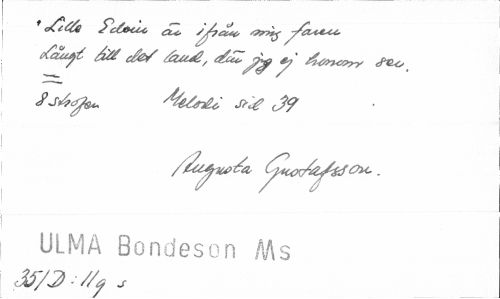 "Lille Edvin är ifrån mig faren
Långt till det land, där jag ej honom ser.
=
8 strofer Melodi sid 39
Augusta Gustafsson.
ULMA Bondeson Ms
351D:11q s